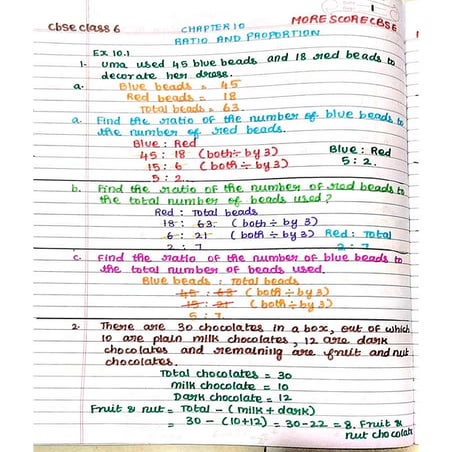 1
Cbse class 6 CHAPTER 10 MORE SCORE CBSE
RATIO AND PROPORTION
Ex 10.1
1. Uma used 45 blue beads and 18 red beads to
decorate her dress.
a. Blue beads = 45
Red beads = 18
Total beads = 63.
a. Find the ratio of the number of blue beads to
the number of red beads.
Blue : Red
45 : 18 (both ÷ by 3) Blue : Red
15 : 6 (both ÷ by 3) 5 : 2.
5 : 2.
b. Find the ratio of the number of red beads to
the total number of beads used?
Red : Total beads
18 : 63. (both ÷ by 3)
6 : 21 (both ÷ by 3) Red : Total
2 : 7 2 : 7
c. Find the ratio of the number of blue beads to
the total number of beads used.
Blue beads : Total beads
45 : 63 (both ÷ by 3)
15 : 21 (both ÷ by 3)
5 : 7.
2. There are 30 chocolates in a box, out of which
10 are plain milk chocolates, 12 are dark
chocolates and remaining are fruit and nut
chocolates.
Total chocolates = 30
milk chocolate = 10
Dark chocolate = 12
Fruit & nut = Total - (milk + dark)
= 30 - (10+12) = 30-22 = 8. Fruit &
nut chocolate